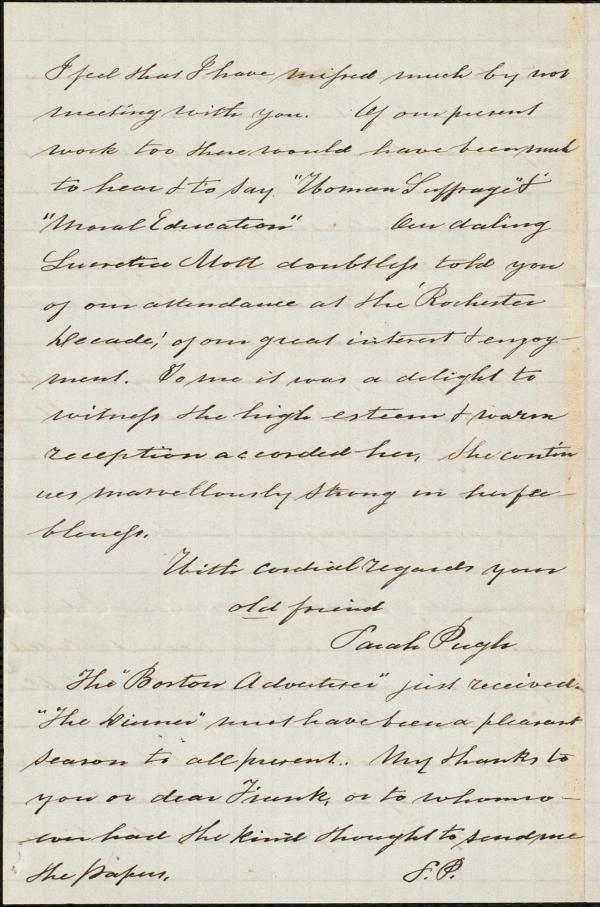 I feel that I have missed much by not
meeting with you. Of our present
work too there would have been much
to hear & to say "Woman Suffrage" &
"Moral Education" Our daling
Lucretia Mott doubtless told you
of our attendance at the 'Rochester
Decade,' of our great interest & enjoy-
ment. To me it was a delight to
witness the high esteem & warm
reception accorded her, She contin
ues marvellously strong in her fee-
bleness.
With cordial regards your
old friend
Sarah Pugh
The "Boston Advertiser" just received.
"The dinner" must have been a pleasant
season to all present. My thanks to
you or dear Frank, or to whomso-
ever had the kind thought to send me
the papers. S. P.